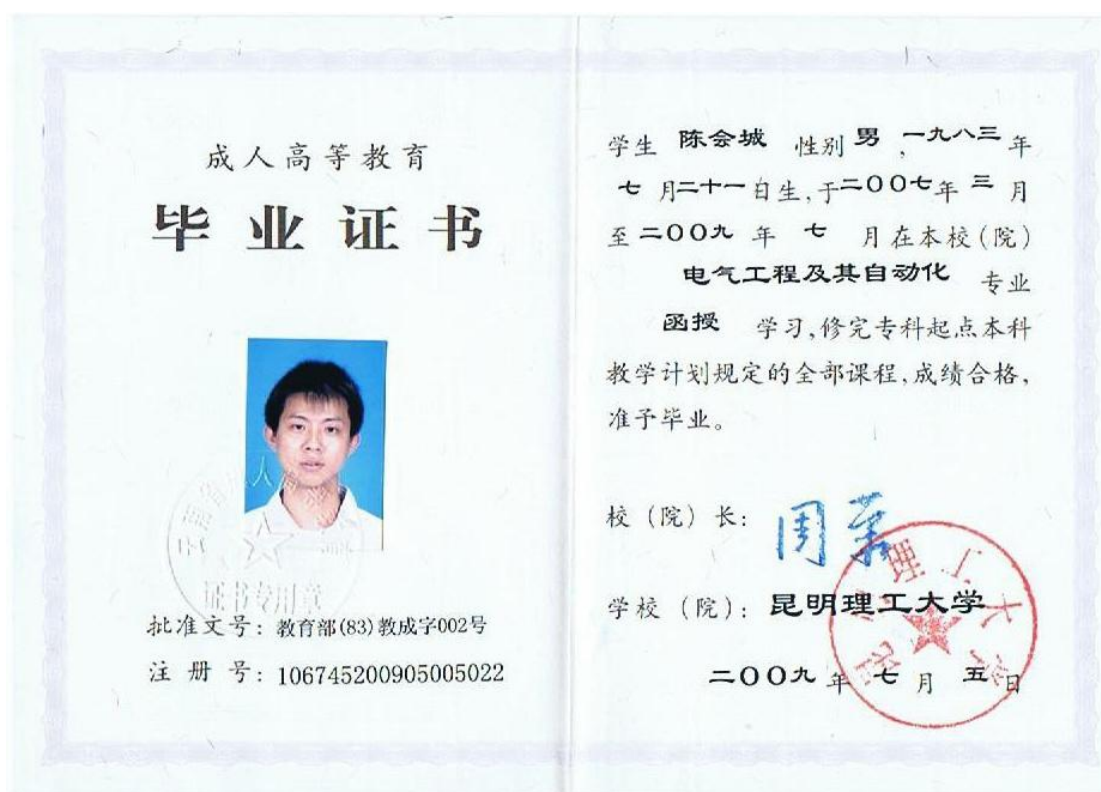 成人高等教育
毕业证书
证书专用章
批准文号：教育部(83)教成字002号
注册号：106745200905005022
学生 陈会城 性别 男，一九八三年
七月二十一日生，于二〇〇七年三月
至二〇〇九年 七 月在本校(院)
电气工程及其自动化 专业
函授 学习，修完专科起点本科
教学计划规定的全部课程，成绩合格，
准予毕业。
校（院）长：
学校（院）：昆明理工大学
昆明理工大学
二〇〇九年七月五日